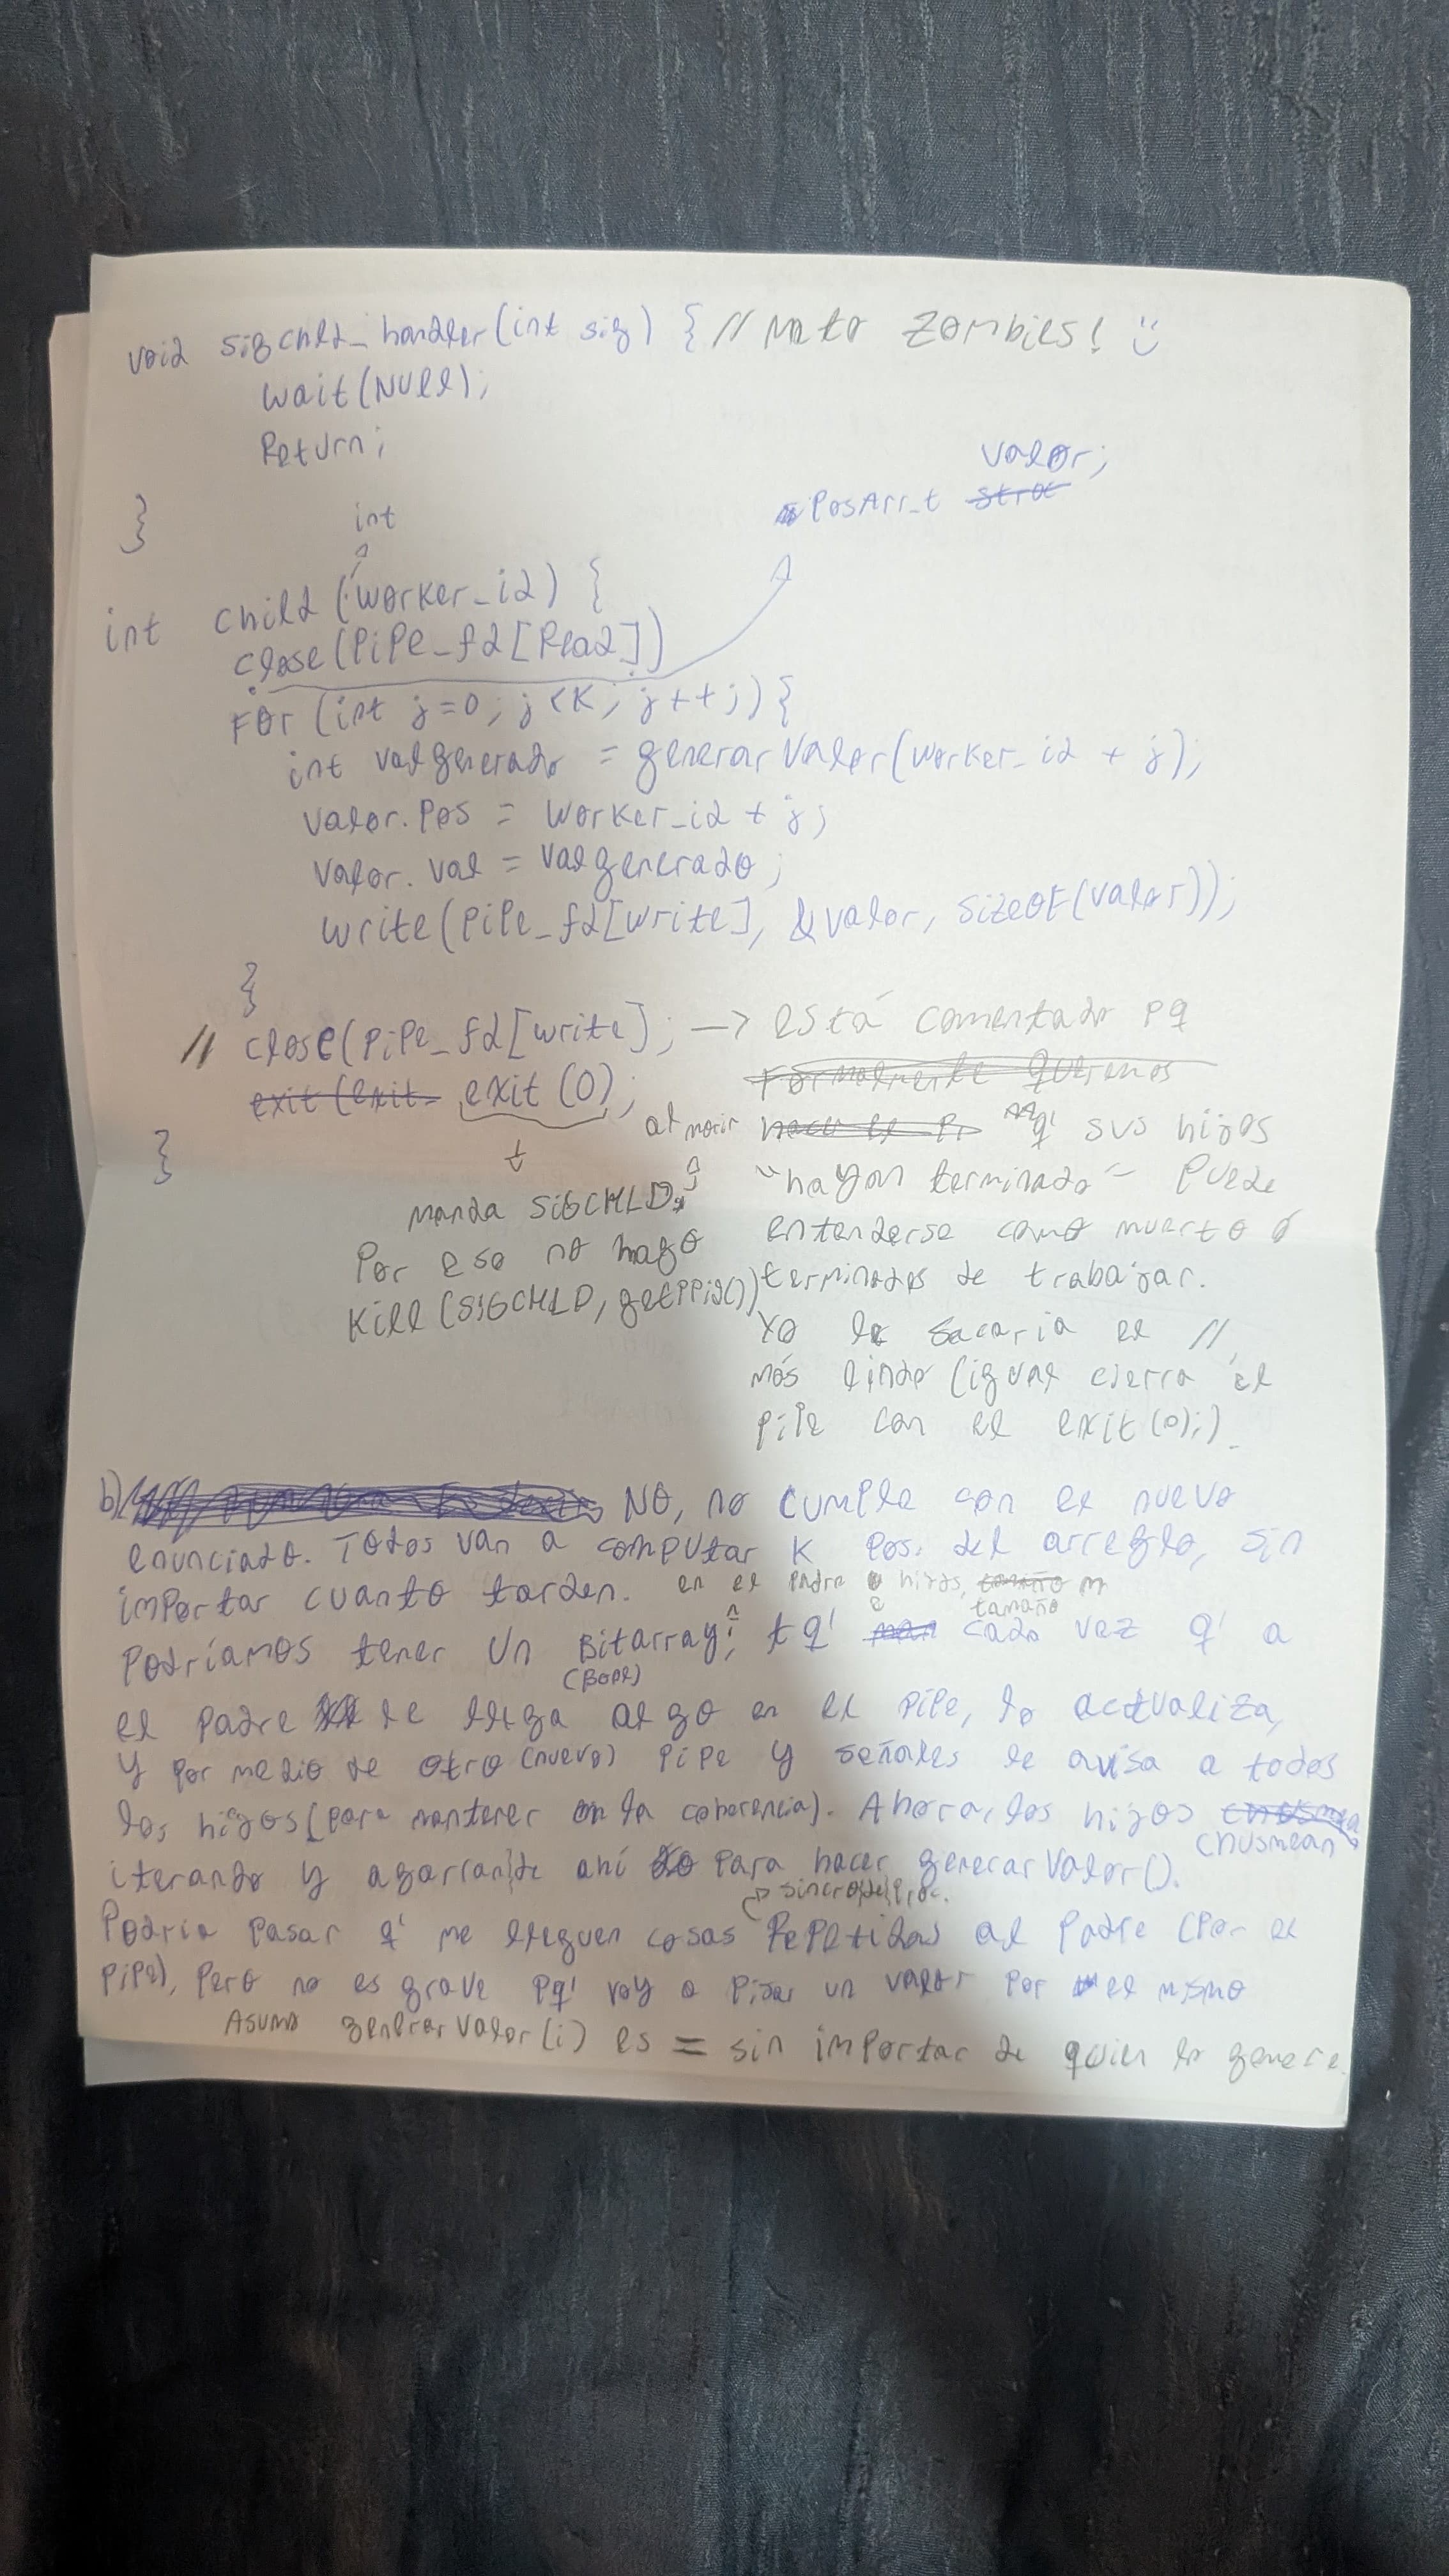 void sigchld_handler(int sig) { // Mato Zombies! :)
wait(NULL);
Return;
}
valor;
PosArr_t
int
int child (worker_id) {
close(Pipe_fd[Read])
For (int j=0; j<K; j++;){
int valgenerado = generarValor(worker_id + j);
valor.Pos = worker_id + j;
valor.val = valgenerado;
write(pipe_fd[write], &valor, sizeof(valor));
}
// close(pipe_fd[write]; → está comentado pq
Formalmente queremos
exit(exit exit(0);
al morir
q' sus hijos
}
manda SIGCHLD,
"hayan terminado" puede
Por eso no hago
entenderse como muerto ó
Kill(SIGCHLD, getPPid())
terminados de trabajar.
Yo le sacaria el //,
más lindo (igual cierra el
pipe con el exit(0);).
b) NO, no cumple con el nuevo
enunciado. Todos van a computar K Pos. del arreglo, sin
importar cuanto tarden.
en el padre e hijos, tamaño
Podríamos tener un Bitarray, tq' cada vez q' a
(Bool)
el padre le llega algo en el pipe, lo actualiza,
y por medio de otro (nuevo) pipe y señales le avisa a todos
los hijos (para mantener la coherencia). Ahora, los hijos
chusmean
iterando y agarran de ahí para hacer generarValor().
Podria pasar q' me lleguen cosas repetidas al padre (por el
pipe), pero no es grave pq' voy a pisar un valor por el mismo
Asumo generarValor(i) es = sin importar de quien lo genere.